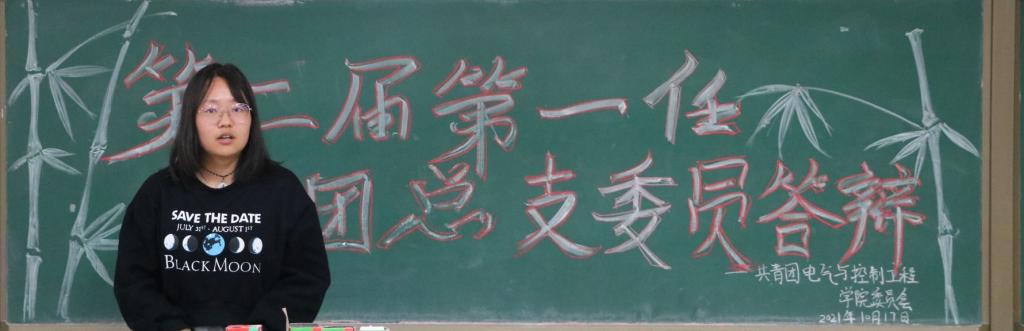 第二届第一任
团总支委员答辩
——共青团电气与控制工程
学院委员会
2021年10月17日
SAVE THE DATE
JULY 31ST - AUGUST 1ST
BLACK MOON